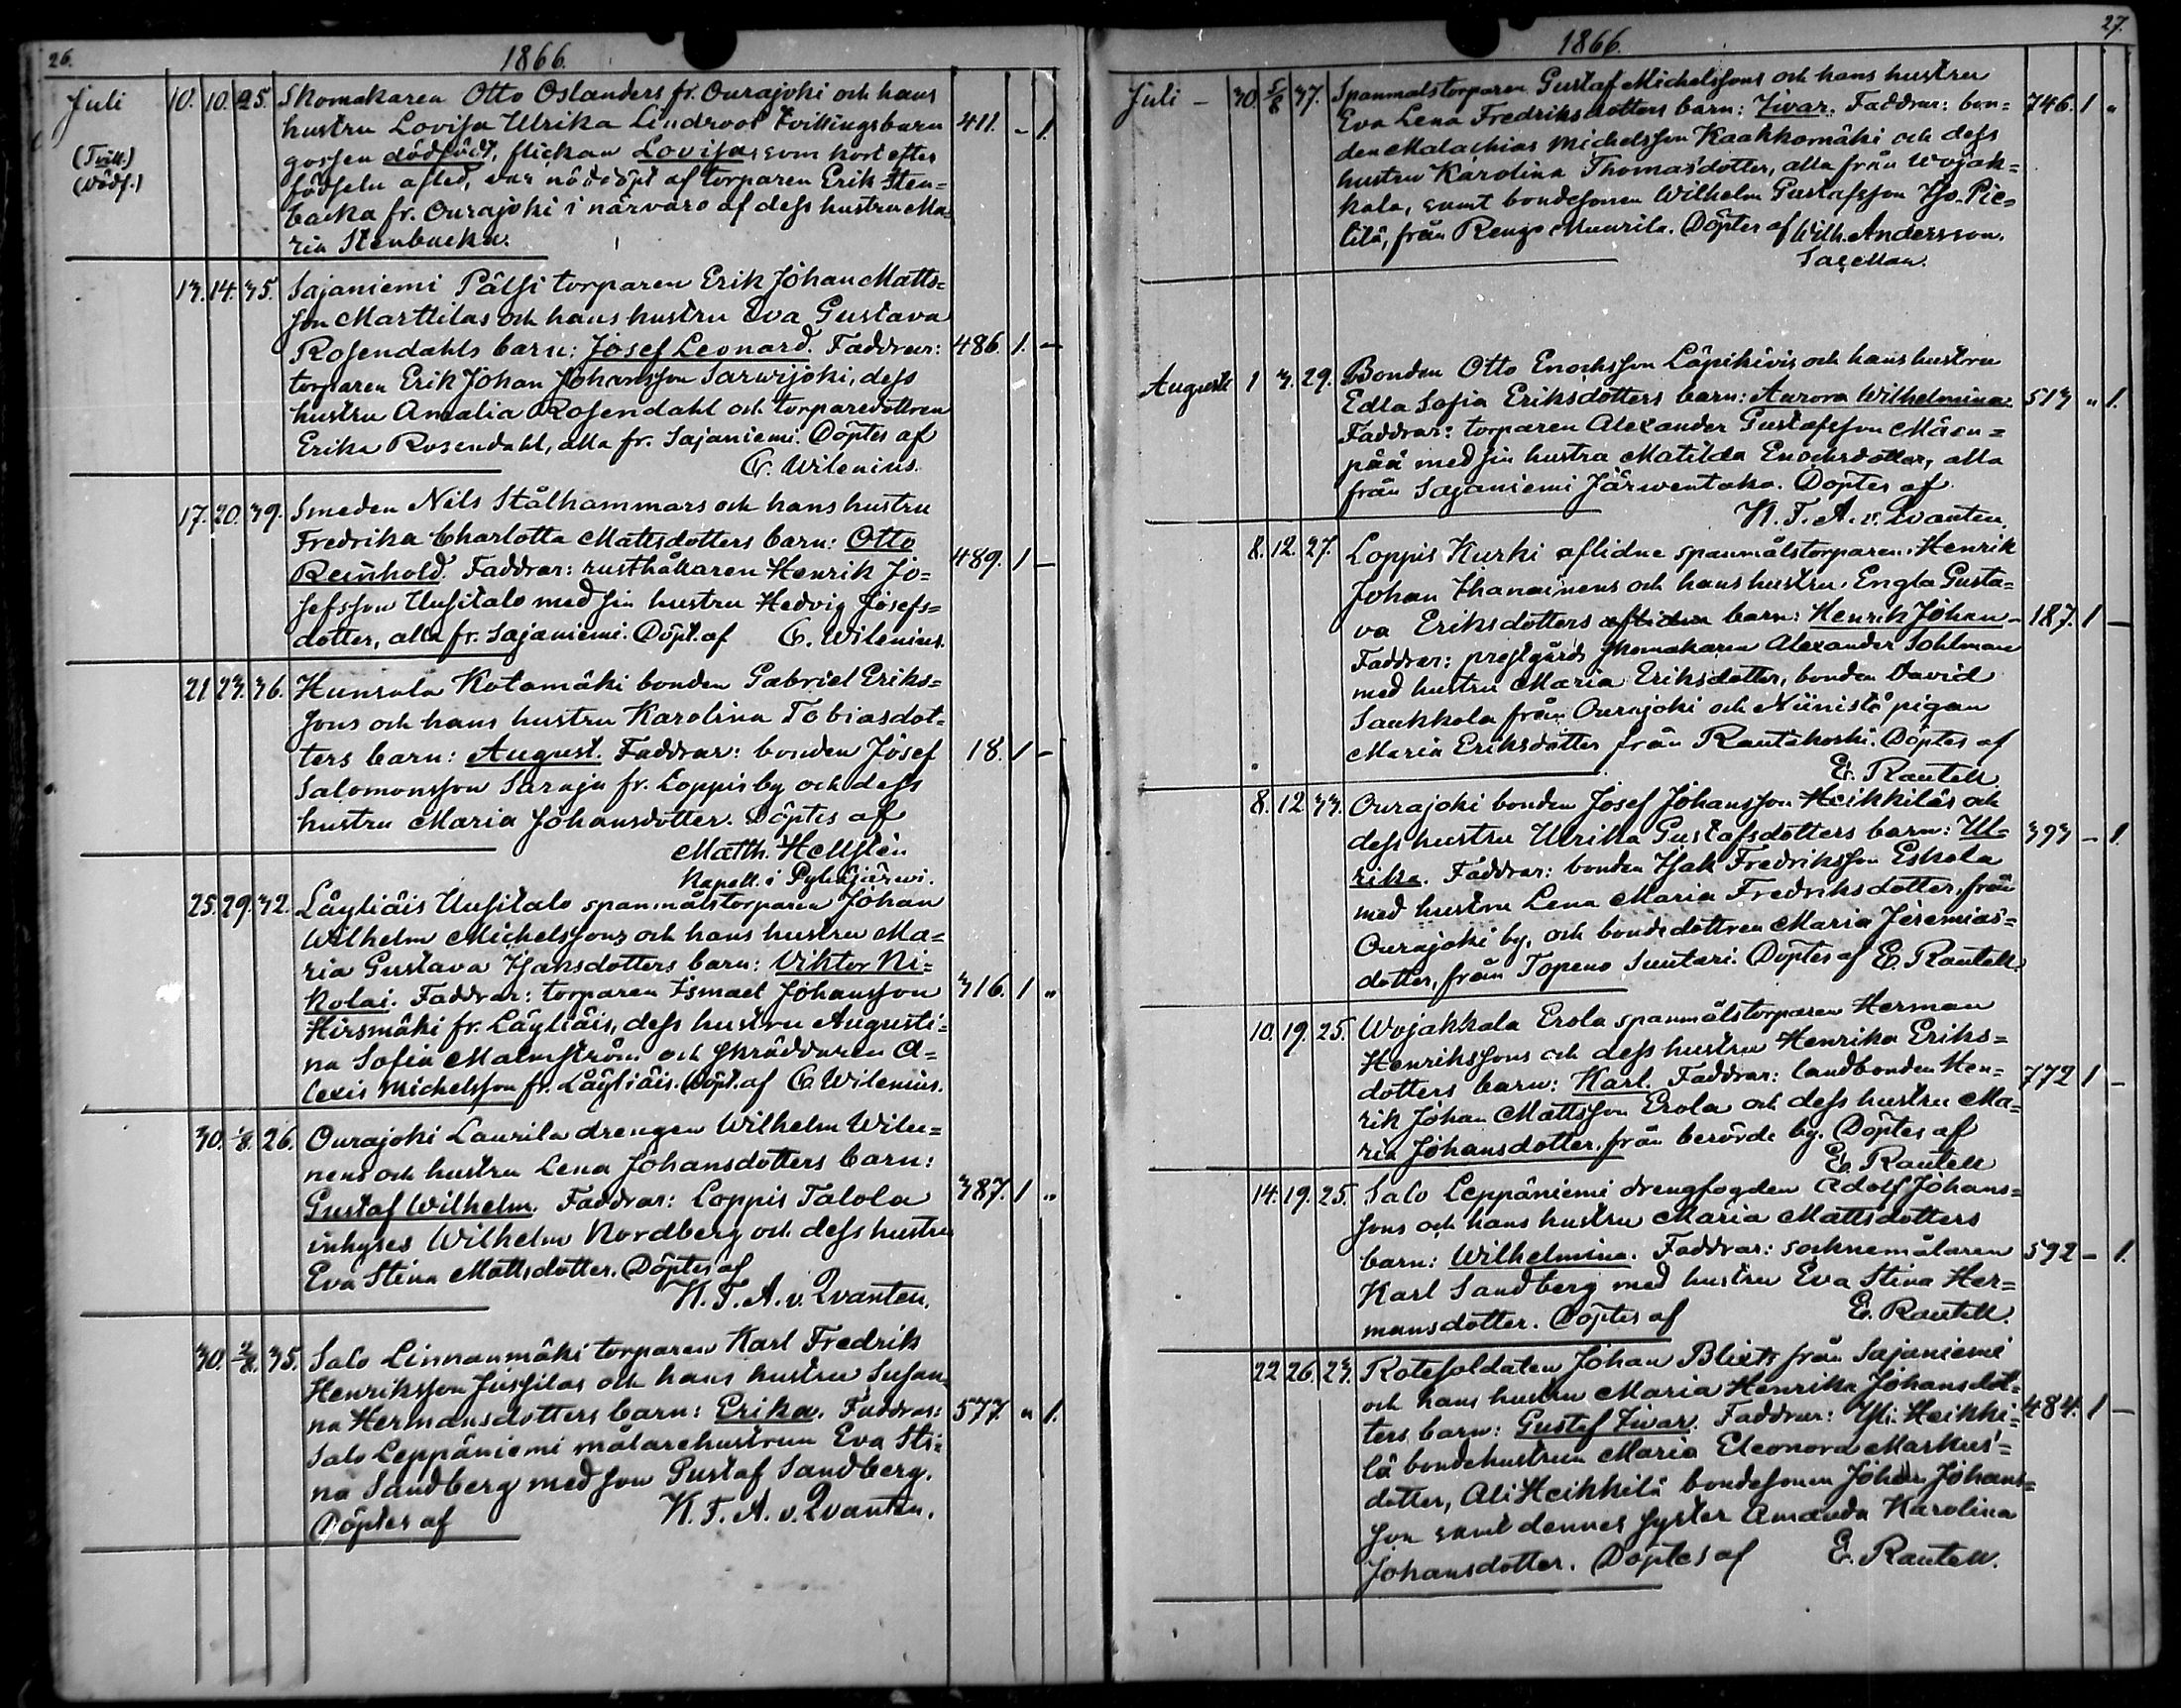 26.
1866.
Juli 10. 10. 25. Skomakaren Otto Oslanders fr. Ourajoki och hans
hustru Lovisa Ulrika Lindroos tvillingsbarn 411. - 1.
(Tvill.) gossen dödfödt, flickan Lovisa, som kort efter
(Dödf.) födseln afled, var nöddöpt af torparen Erik Sten=
backa fr. Ourajoki i närvaro af dess hustru Ma=
ria Stenbacka.
13. 14. 35. Sajaniemi Pälsi torparen Erik Johan Matts=
son Marttilas och hans hustru Eva Gustava
Rosendahls barn: Josef Leonard. Faddrar: 486. 1. -
torparen Erik Johan Johansson Sarwijoki, dess
hustru Amalia Rosendahl och torparedottren
Erika Rosendahl, alla fr. Sajaniemi. Döptes af
G. Wilenius.
17. 20. 39. Smeden Nils Stålhammars och hans hustru
Fredrika Charlotta Mattsdotters barn: Otto
Reinhold. Faddrar: rusthållaren Henrik Jo= 489. 1 -
sefsson Uusitalo med sin hustru Hedvig Josefs=
dotter, alla fr. Sajaniemi. Döpt. af G. Wilenius.
21 23. 36. Hunsala Kotamäki bonden Gabriel Eriks=
sons och hans hustru Karolina Tobiasdot=
ters barn: August. Faddrar: bonden Josef 18. 1 -
Salomonsson Saraja fr. Loppis by och dess
hustru Maria Johansdotter. Döptes af
Matth. Hellsten
Kapell. i Pyhäjärwi.
25. 29. 32. Läyliäis Uusitalo spanmålstorparen Johan
Wilhelm Michelssons och hans hustru Ma=
ria Gustava Isaksdotters barn: Viktor Ni=
kolai. Faddrar: torparen Ismael Johansson 316. 1 "
Hirsmäki fr. Läyliäis, dess hustru Augusti=
na Sofia Malmström och skräddaren A=
lexis Michelsson fr. Läyliäis. Döpt. af G. Wilenius.
30. 1/8. 26. Ourajoki Laurila drengen Wilhelm Wilu=
nens och hustru Lena Johansdotters barn:
Gustaf Wilhelm. Faddrar: Loppis Talola 387. 1 "
inhyses Wilhelm Nordberg och dess hustru
Eva Stina Mattsdotter. Döptes af
K. T. A. v. Qvanten.
30. 2/8. 35. Salo Linnanmäki torparen Karl Fredrik
Henriksson Jussilas och hans hustru Susan=
na Hermansdotters barn: Erika. Faddrar: 577. " 1.
Salo Leppäniemi målarehustrun Eva Sti=
na Sandberg med son Gustaf Sandberg.
Döptes af K. T. A. v. Qvanten.
27.
1866.
Juli - 30. 5/8 37. Spanmålstorparen Gustaf Michelssons och hans hustru
Eva Lena Fredriksdotters barn: Iivar. Faddrar: bon= 746. 1 "
den Malachias Michelsson Kaakkomäki och dess
hustru Karolina Thomasdotter, alla från Wojak=
kala, samt bondesonen Wilhelm Gustafsson Iso-Pie=
tilä, från Rengo Muurila. Döptes af Wilh. Andersson.
Sacellan.
Augusti 1 3. 29. Bonden Otto Enochsson Läpikivis och hans hustru
Edla Sofia Eriksdotters barn: Aurora Wilhelmina. 513 " 1.
Faddrar: torparen Alexander Gustafsson Mäen=
pää med sin hustru Matilda Enochsdotter, alla
från Sajaniemi Järwentaka. Döptes af
K. T. A. v. Qvanten.
8. 12. 27. Loppis Kurki aflidne spanmålstorparen Henrik
Johan Ihanainens och hans hustru Engla Gusta=
va Eriksdotters aflidna barn: Henrik Johan - 187. 1 -
Faddrar: prestgårds skomakaren Alexander Sohlman
med hustru Maria Eriksdotter, bonden David
Saukkola från Ourajoki och Niinistö pigan
Maria Eriksdotter från Rautakoski. Döptes af
E. Rautell
8. 12 33. Ourajoki bonden Josef Johansson Heikkiläs och
dess hustru Ulrika Gustafsdotters barn: Ul= 393 - 1.
rika. Faddrar: bonden Isak Fredriksson Eskola
med hustru Lena Maria Fredriksdotter, från
Ourajoki by, och bondedottren Maria Jeremias=
dotter, från Topeno Suutari. Döptes af E. Rautell.
10. 19. 25. Wojakkala Erola spanmålstorparen Herman
Henrikssons och dess hustru Henrika Eriks=
dotters barn: Karl. Faddrar: landbonden Hen= 772 1 -
rik Johan Mattsson Erola och dess hustru Ma=
ria Johansdotter, från berörde by. Döptes af
E. Rautell
14. 19. 25. Salo Leppäniemi drengfogden Adolf Johans=
sons och hans hustru Maria Mattsdotters
barn: Wilhelmina. Faddrar: socknemålaren 592 - 1.
Karl Sandberg med hustru Eva Stina Her=
mansdotter. Döptes af E. Rautell.
22 26. 23. Rotesoldaten Johan Blixts från Sajaniemi
och hans hustru Maria Henrika Johansdot=
ters barn: Gustaf Iivar. Faddrar: Yli-Heikki= 484. 1 -
lä bondehustrun Maria Eleonora Markus=
dotter, Ali Heikkilä bondesonen Johan Johans=
son samt dennes syster Amanda Karolina
Johansdotter. Döptes af E. Rautell.